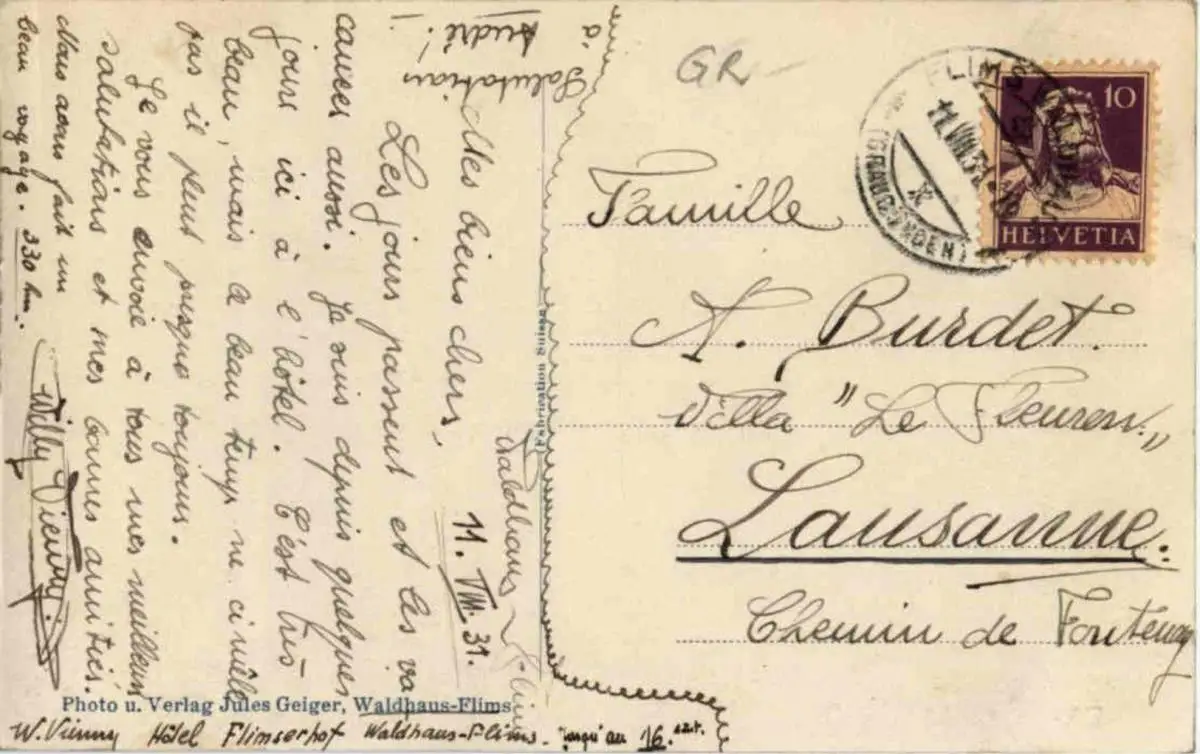 Waldhaus-Flims
11. VIII. 31.
Mes biens chers,
Les jours passent et les va
cances aussi. Je suis depuis quelques
jours ici à l'hôtel. C'est très
beau, mais le beau temps ne
pas il pleut presque toujours.
Je vous envoie à tous mes meilleurs
salutations et mes bonnes amitiés.
Nous avons fait un
beau voyage. 330 km.
Willy Vienny.
Salutations
à
André!
GR-
FLIMS WALDHAUS
11.VIII.31.
(GRAUBÜNDEN)
10
HELVETIA
Famille
A. Burdet.
Villa "Le Fleuron."
Lausanne.
Chemin de Fontenay
Fabrication Suisse
Photo u. Verlag Jules Geiger, Waldhaus-Flims
W. Vienny Hôtel Flimserhof Waldhaus-Flims - jusqu'au 16. août.